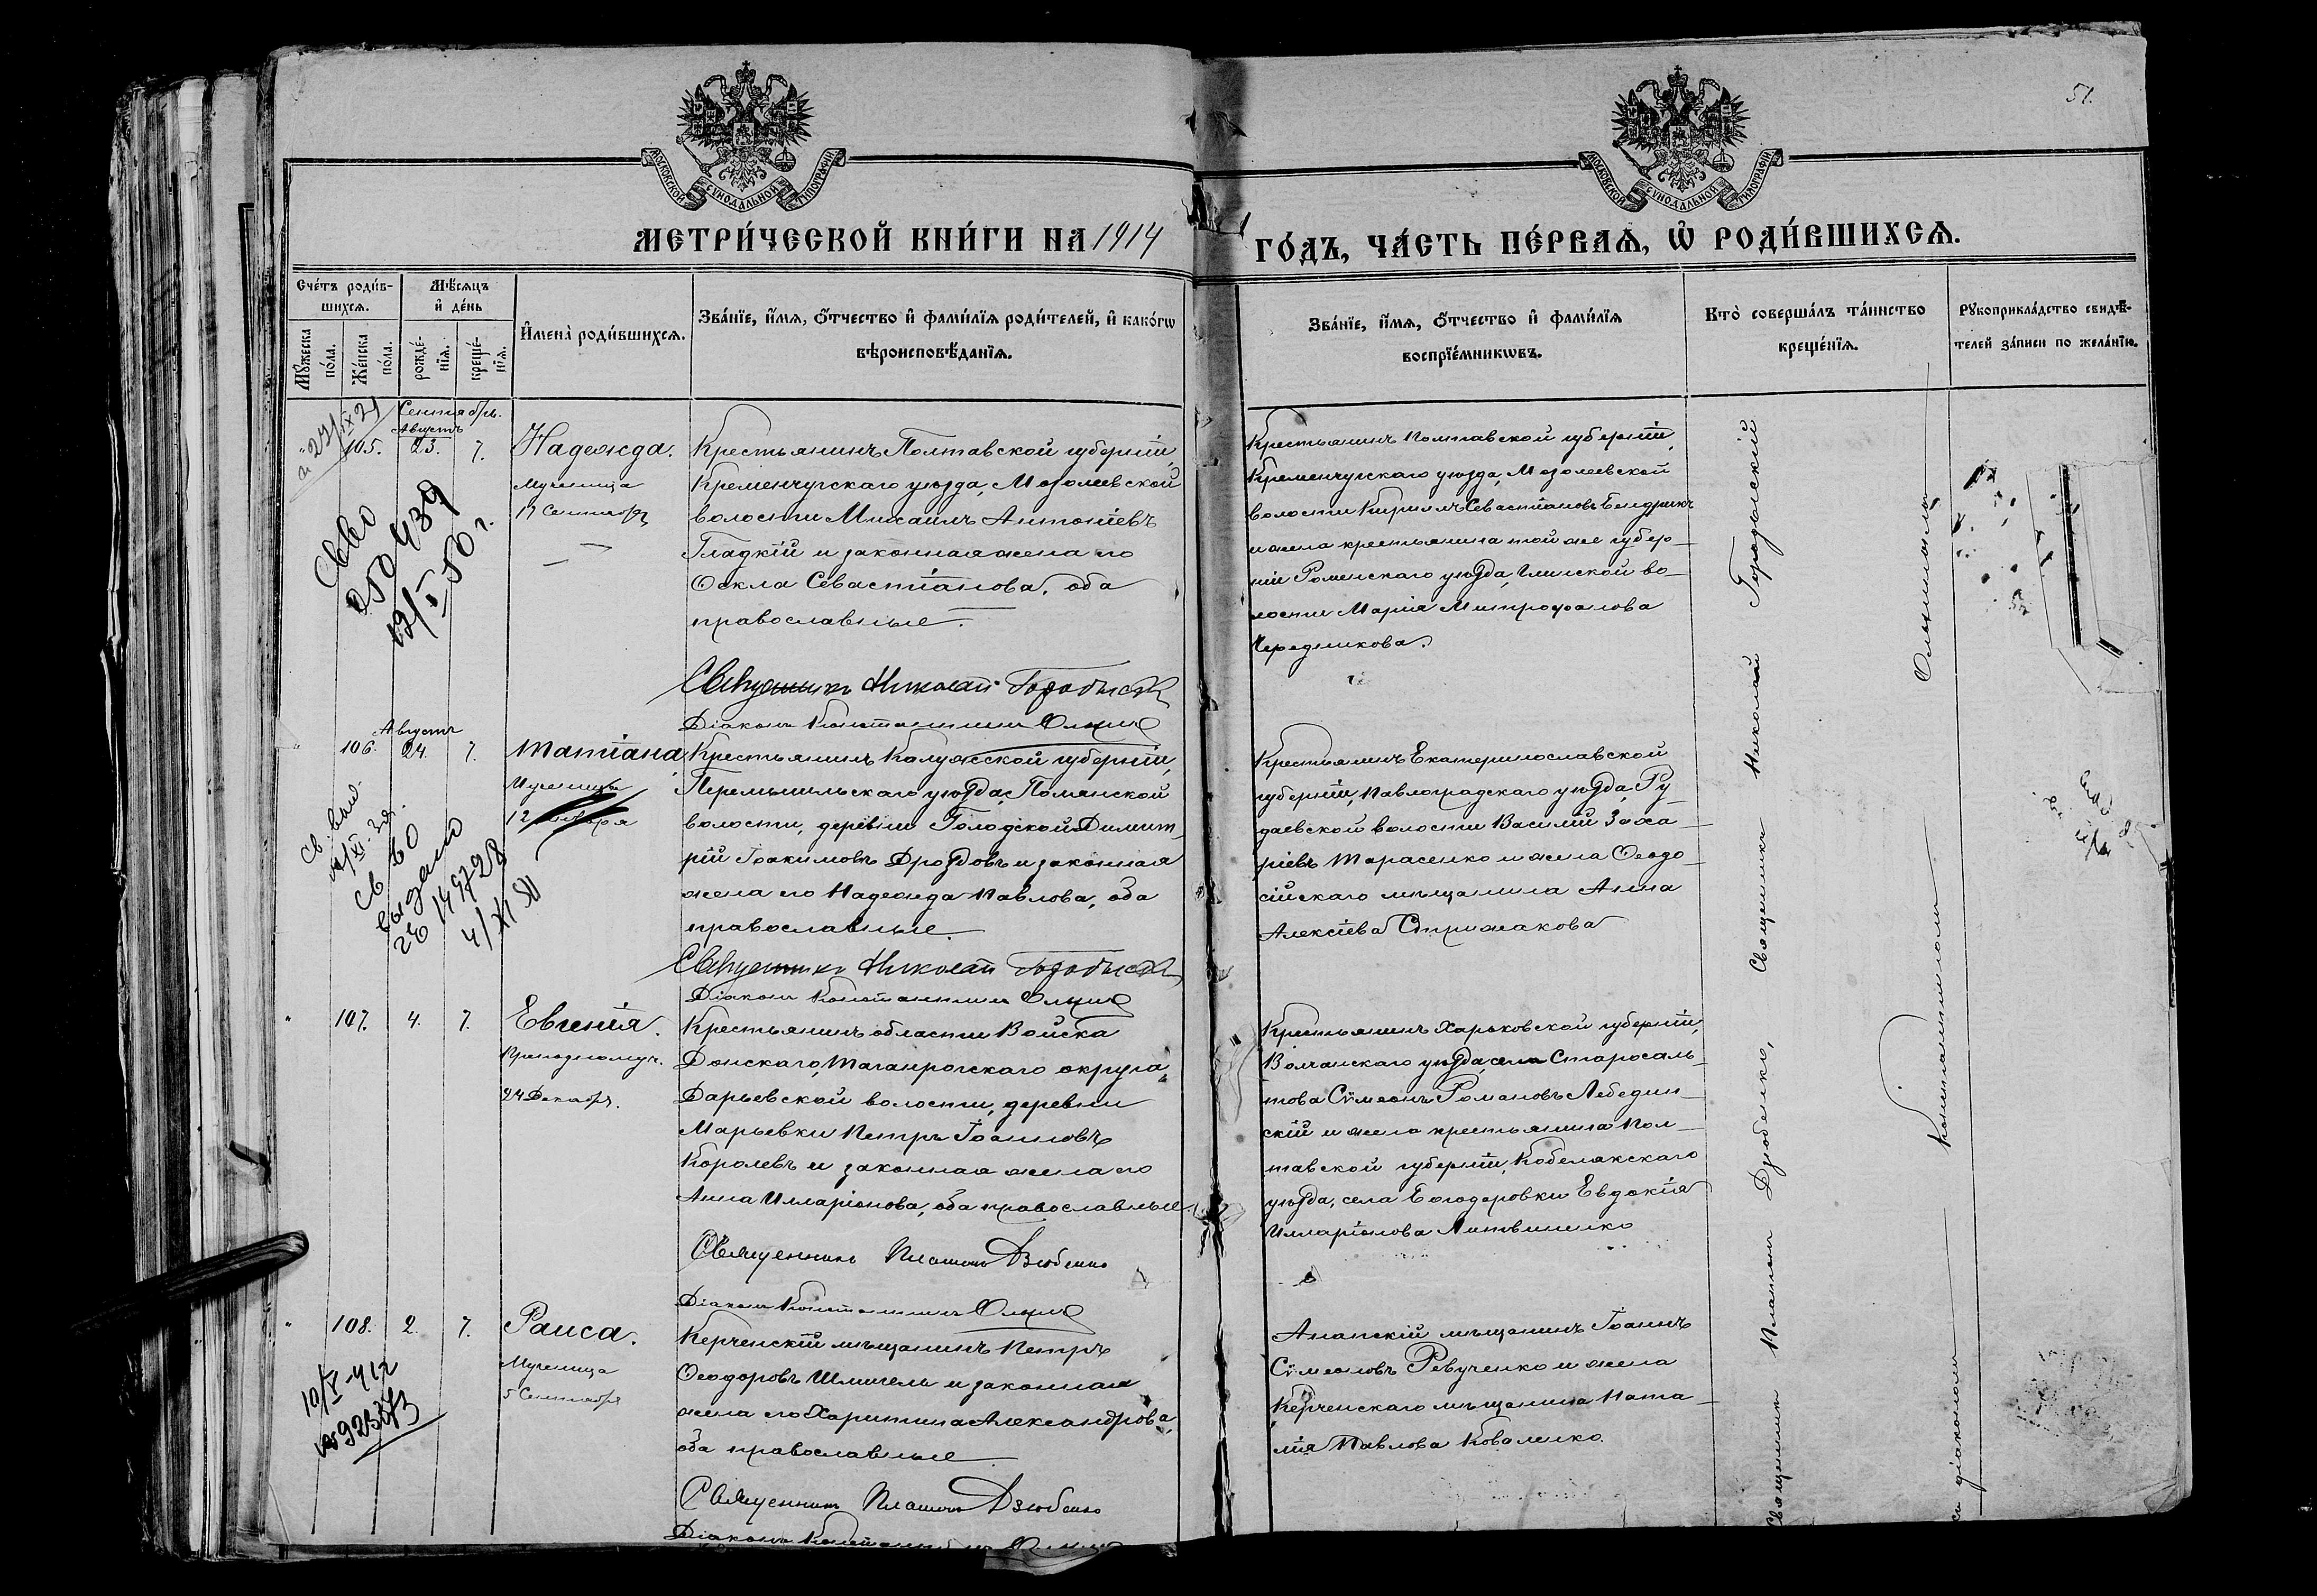 51.
МОСКОВСКОЙ СѴНОДАЛЬНОЙ ТИПОГРАФІИ
МОСКОВСКОЙ СѴНОДАЛЬНОЙ ТИПОГРАФІИ
МЕТРИ́ЧЕСКОЙ КНИ́ГИ НА 1914
ГО́ДЪ, ЧА́СТЬ ПЕ́РВАѦ, Ѡ҆ РОДИ́ВШИХСѦ.
Сче́тъ роди́в-
шихсѧ.
Мꙋ́жеска по́ла.
Же́нска по́ла.
Мѣ́сѧцъ
и҆ де́нь
рожде́-
нїѧ.
креще́-
нїѧ.
И҆мена̀ роди́вшихсѧ.
Зва́нїе, и҆́мѧ, ѻ҆́тчество и҆ фами́лїѧ роди́телей, и҆ како́гѡ
вѣроисповѣ́данїѧ.
Зва́нїе, и҆́мѧ, ѻ҆́тчество и҆ фами́лїѧ
воспрїе́мникѡвъ.
Кто̀ соверша́лъ та́инство
креще́нїѧ.
Рꙋкоприкла́дство свидѣ́-
телей за́писи по жела́нїю.
Сентябрь.
Августъ
105. 23. 7. Надежда.
Мученица
17 Сентября
Крестьянинъ Полтавской губерніи,
Кременчугскаго уѣзда, Мозолеевской
волости Михаилъ Антоніевъ
Гладкій и законная жена его
Ѳекла Севастіанова, оба
православные.
Священникъ Николай Городыскій
Діаконъ Константинъ
Крестьянинъ Полтавской губерніи,
Кременчугскаго уѣзда, Мозолеевской
волости Кириллъ Севастіановъ Бендрикъ
и жена крестьянина той же губер-
ніи Роменскаго уѣзда, Глинской во-
лости Марія Митрофанова
Чередникова.
Св-во
250439
12/I 50 г.
Августъ
106. 24. 7. Татіана
Мученица
12 января
Крестьянинъ Калужской губерніи,
Перемышльскаго уѣзда,
волости, деревни Голодской Димит-
рій Іоакимовъ Дроздовъ и законная
жена его Надежда Павлова, оба
православные.
Священникъ Николай Городыскій
Діаконъ Константинъ
Крестьянинъ Екатеринославской
губерніи, Павлоградскаго уѣзда, Ру-
даевской волости Василій Заха-
ріевъ Тарасенко и жена Ѳеодо-
сійскаго мѣщанина Анна
Алексіева Стрижакова
Св-во
выдано
149728
4/XI 51
107. 4. 7. Евгенія.
Преподномуч.
24 Декабря.
Крестьянинъ области Войска
Донскаго, Таганрогскаго округа,
Дарьевской волости, деревни
Марьевки Петръ Іоанновъ
Королевъ и законная жена его
Анна Илларіонова, оба православные
Священникъ Платонъ Дзюбенко
Діаконъ Константинъ
Крестьянинъ Харьковской губерніи,
Волчанскаго уѣзда, села Старосаль-
това Сѵмеонъ Романовъ Лебедин-
скій и жена крестьянина Пол-
тавской губерніи, Кобелякскаго
уѣзда, села Богодаровки Евдокія
Илларіонова Литвиненко
108. 2. 7. Раиса.
Мученица
5 Сентября
Керченскій мѣщанинъ Петръ
Ѳеодоровъ Шмигель и законная
жена его Харитина Александрова,
оба православные
Священникъ Платонъ Дзюбенко
Діаконъ
Анапскій мѣщанинъ Іоаннъ
Сѵмеоновъ Ревученко и жена
Керченскаго мѣщанина Ната-
лія Павлова Коваленко.
Священники Платонъ Дзюбенко, Священникъ Николай Городыскій
съ діакономъ Константиномъ